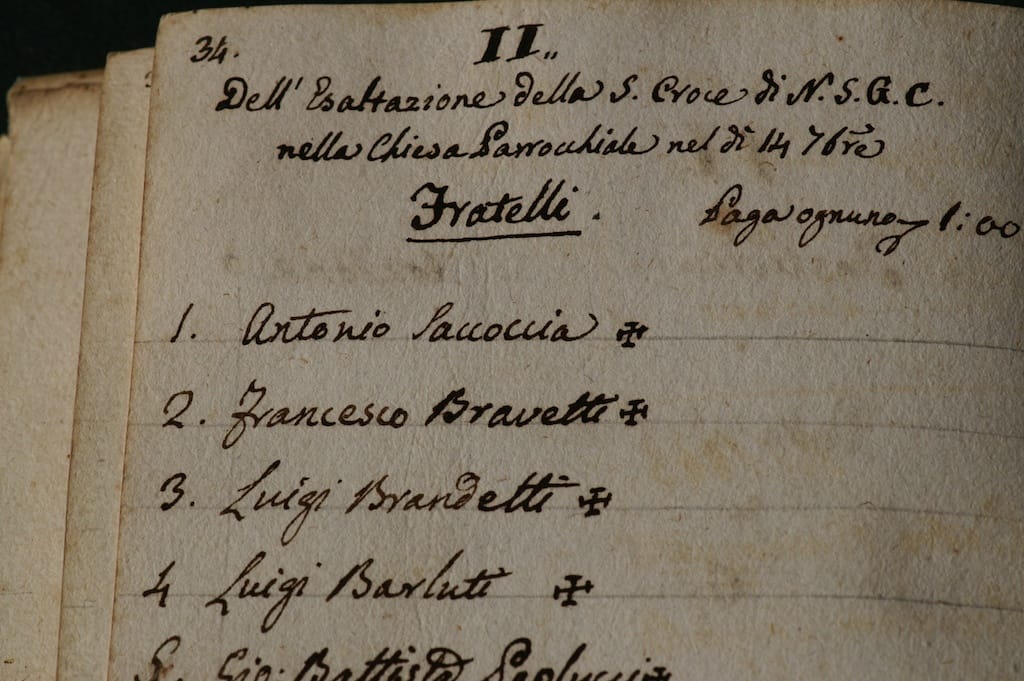 34.
II„
Dell' Esaltazione della S. Croce di N. S. G. C.
nella Chiesa Parrochiale nel dì 14 7bre
Fratelli. Paga ognuno 1:00
1. Antonio Saccoccia ✠
2. Francesco Bravetti ✠
3. Luigi Brandetti ✠
4 Luigi Barluti ✠
5. Gio: Battista Paolucci ✠